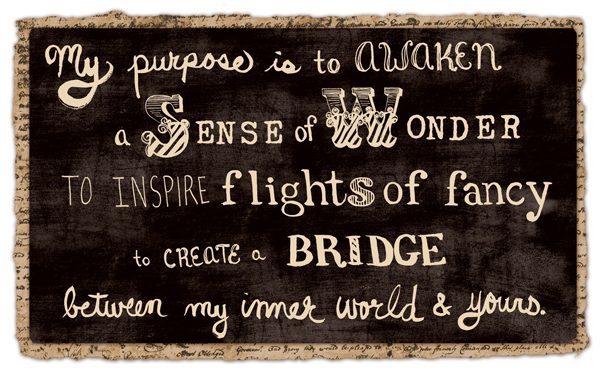 My purpose is to AWAKEN
a SENSE of WONDER
TO INSPIRE flights of fancy
to CREATE a BRIDGE
between my inner world & yours.